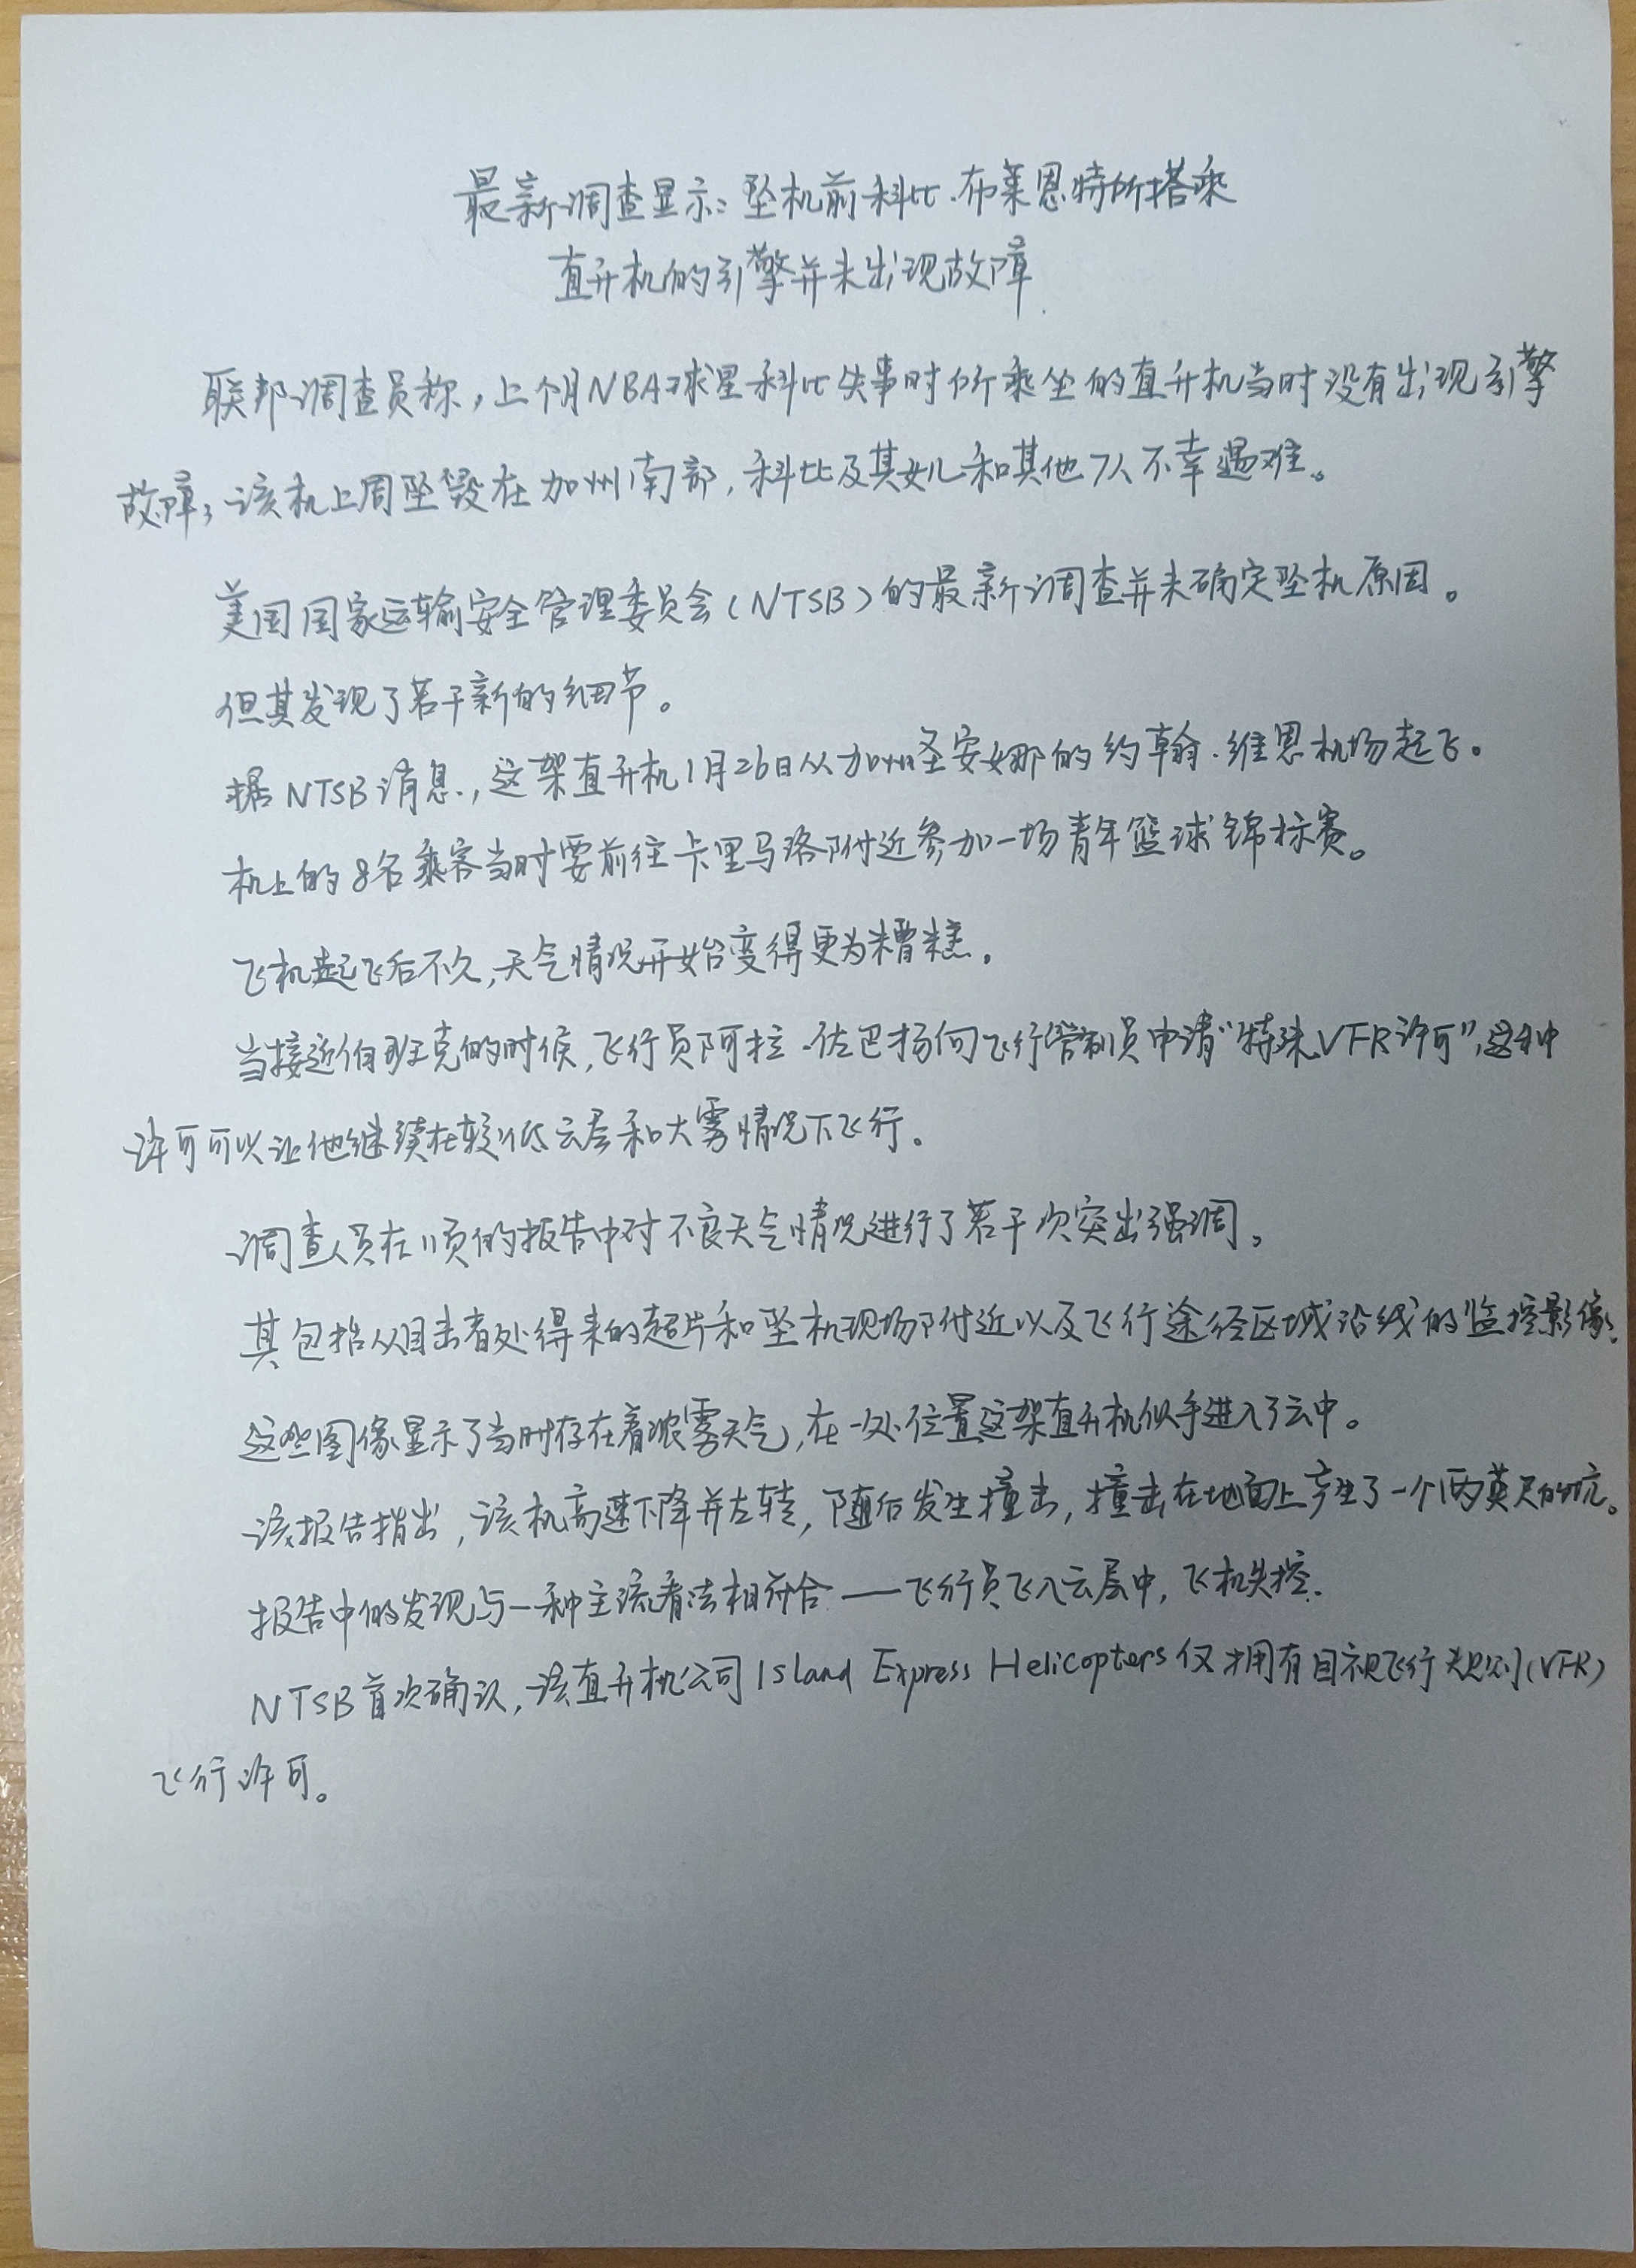 最新调查显示：坠机前科比·布莱恩特所搭乘
直升机的引擎并未出现故障
联邦调查员称，上个月NBA球星科比失事时所乘坐的直升机当时没有出现引擎
故障，该机上周坠毁在加州南部，科比及其女儿和其他7人不幸遇难。
美国国家运输安全管理委员会（NTSB）的最新调查并未确定坠机原因。
但其发现了若干新的细节。
据NTSB消息，这架直升机1月26日从加州圣安娜的约翰·维恩机场起飞。
机上的8名乘客当时要前往卡里马洛附近参加一场青年篮球锦标赛。
飞机起飞后不久，天气情况开始变得更为糟糕。
当接近伯班克的时候，飞行员阿拉·佐巴扬向飞行管制员申请“特殊VFR许可”，这种
许可可以让他继续在较低云层和大雾情况下飞行。
调查人员在11页的报告中对不良天气情况进行了若干次突出强调。
其包括从目击者处得来的超片和坠机现场附近以及飞行途径区域沿线的监控影像。
这些图像显示了当时存在着浓雾天气，在一处位置这架直升机似乎进入了云中。
该报告指出，该机高速下降并左转，随后发生撞击，撞击在地面上产生了一个两英尺的坑。
报告中的发现与一种主流看法相符合——飞行员飞入云层中，飞机失控.
NTSB首次确认，该直升机公司Island Express Helicopters仅拥有目视飞行规则（VFR）
飞行许可。